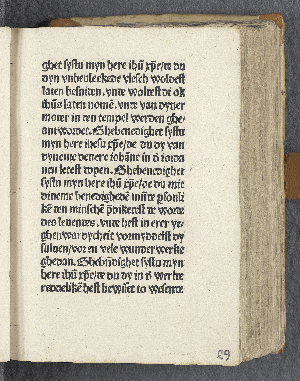 ghet systu myn here ihū xp̄e/de du
dyn vnbeuleckede vlesch woldest
laten besniten. vnde woldest de ok
ihūs laten nomē. vnde van dyner
moder in den tempel werden ghe-
antwordet. Ghebenedighet systu
myn here ihesu xp̄e/de du dy van
dyneme denere iohāne in d̄ iorda
nen leest dopen. Ghebenedighet
systu myn here ihū xp̄e/de du mit
dineme benedighedē mūde
kē den minschē predikedest de worde
des leuendes. vnde hest in erer ye-
ghenwardycheit
suluen/vor en vele wunderwerke
ghedan. Ghebn̄dighet systu myn
here ihū xp̄e/de du dy in d̄ werke
redelikē hest bewiset to wesende
29